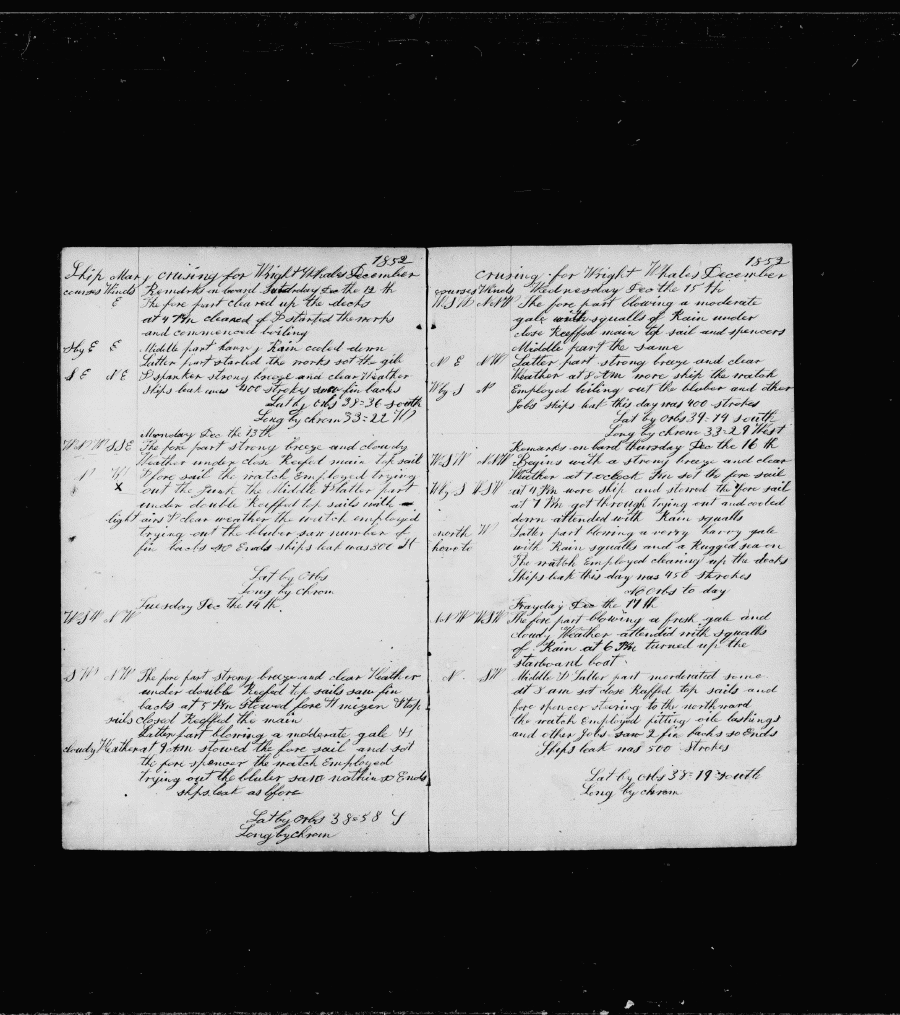 1852
Ship Mary crusing for Wright Whales December
courses Winds Remarks on board Saterday Dec the 12 th
E The fore part cleared up the decks
at 4 Pm cleared of & started the works
and commenced boiling
S by E E Middle part Rain cooled down
Latter part started the works sot the gib
S E N E & spanker strong breeze and clear Weather
Ships leak was 400 strokes saw fin backs
Lat by orbs 38=36 south
Long by chrom 33=22 W
Monday Dec the 13th
W N W S S E The fore part strong breeze and cloudy
Weather under close Reefet main top sail
N W & fore sail the watch Employed trying
x out the Junk the Middle & latter part
under double Reeffed top sails with
light airs & clear weather the watch employed
trying out the bluber saw number of
fin backs so Ends ships leak was 300 St
Lat by orbs
Long by chrom
Tuesday Dec the 14th
W S W N W
S W N W The fore part strong breeze and clear Weather
under double Reefed top sails saw fin
backs at 5 Pm stowed fore & mizen top
sails closed Reeffed the main
Latter part blowing a moderate gale
cloudy Weather at 9 Am stowed the fore sail and sot
the fore spencer the watch Employed
trying out the bluber saw nothin so Ends
ships leak as bfore
Lat by orbs 38=58 S
Long by chrom
1852
crusing for Wright Whales December
courses Winds Wednesday Dec the 15 th
W S W N N W The fore part blowing a moderate
gale with squalls of Rain under
close Reeffed main top sail and spencers
Middle part the same
N E N W Latter part strong breeze and clear
Weather at 8 Am wore ship the watch
W by S N Employed boiling out the bluber and other
Jobs ships leak this day was 400 strokes
Lat by orbs 39=14 south
Long by chrom 33=29 West
Remarks on board thursday Dec the 16 th
W S W N N W Begins with a strong breeze and clear
Weather at 1 oclock Pm sot the fore sail
W by S W S W at 4 Pm wore ship and stowed the fore sail
at 7 Pm got through trying out and cooled
down attended with Rain squalls
north W Latter part blowing a very havvy gale
hove to with Rain squalls and a Rugged sea on
The watch Employed cleaning up the decks
Ships leak this day was 450 strokes
No orbs to day
Frayday Dec the 17 th
N W W S W The fore part blowing a fresh gale and
cloudy Weather attendid with squalls
of Rain at 6 Pm turned up the
starboard boat
N S W Middle & Latter part morderated some
at 8 am sot close Reffed top sails and
fore spencer stering to the northward
the watch Employed fitting oile lashings
and other Jobs saw 2 fin backs so Ends
Ships leak was 500 strokes
Lat by orbs 38=19 south
Long by chrom